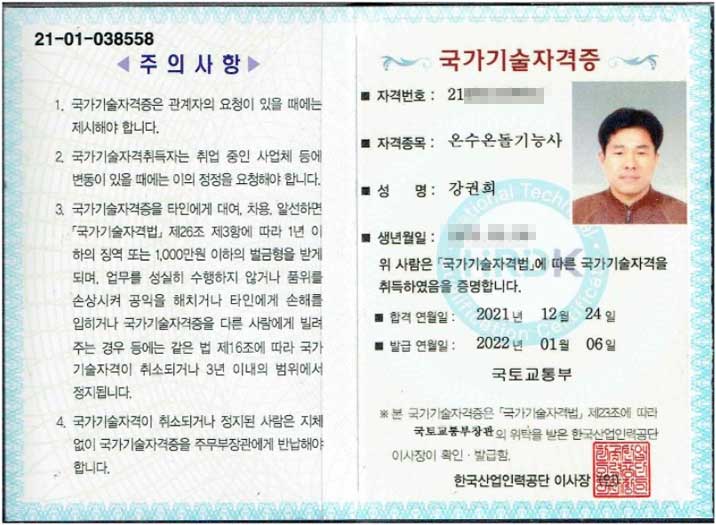 21-01-038558
주의사항
1. 국가기술자격증은 관계자의 요청이 있을 때에는
제시해야 합니다.
2. 국가기술자격취득자는 취업 중인 사업체 등에
변동이 있을 때에는 이의 정정을 요청해야 합니다.
3. 국가기술자격증을 타인에게 대여, 차용, 알선하면
「국가기술자격법」제26조 제3항에 따라 1년 이
하의 징역 또는 1,000만원 이하의 벌금형을 받게
되며, 업무를 성실히 수행하지 않거나 품위를
손상시켜 공익을 해치거나 타인에게 손해를
입히거나 국가기술자격증을 다른 사람에게 빌려
주는 경우 등에는 같은 법 제16조에 따라 국가
기술자격이 취소되거나 3년 이내의 범위에서
정지됩니다.
4. 국가기술자격이 취소되거나 정지된 사람은 지체
없이 국가기술자격증을 주무부장관에게 반납해야
합니다.
국가기술자격증
■ 자격번호 : 21
■ 자격종목 : 온수온돌기능사
■ 성 명 : 강권희
■ 생년월일 :
위 사람은「국가기술자격법」에 따른 국가기술자격을
취득하였음을 증명합니다.
■ 합격 연월일 : 2021 년 12 월 24 일
■ 발급 연월일 : 2022 년 01 월 06 일
국토교통부
※ 본 국가기술자격증은「국가기술자격법」제23조에 따라
국토교통부장관의 위탁을 받은 한국산업인력공단
이사장이 확인 · 발급함.
한국산업인력공단 이사장 (인)